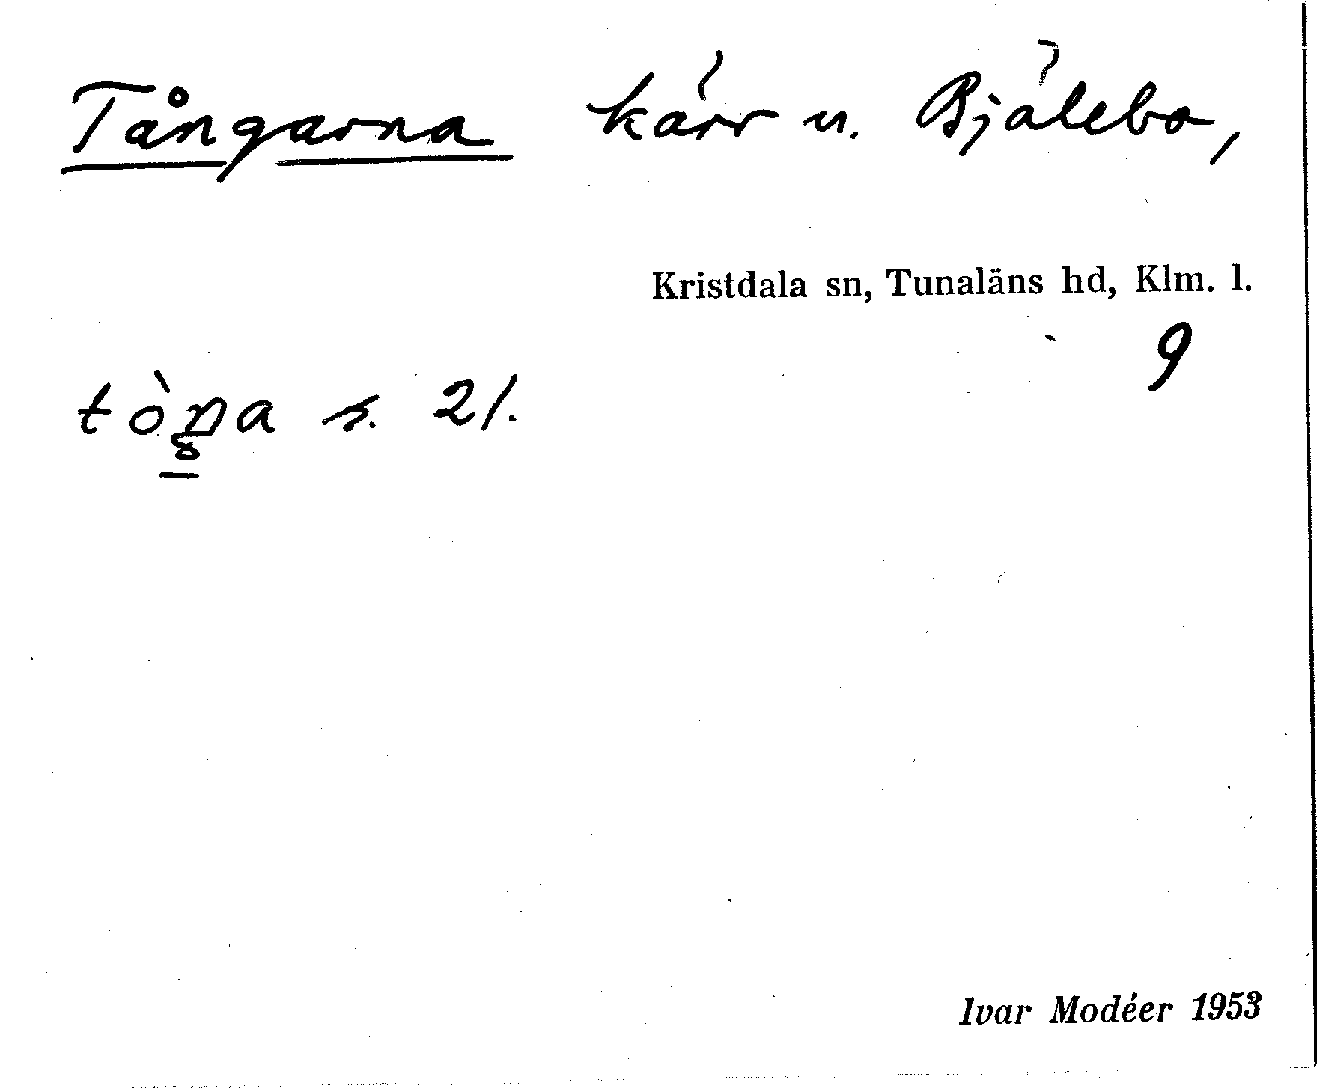 Tångarna kärr u. Bjälebo,
Kristdala sn, Tunaläns hd, Klm. l.
9
s. 21.
Ivar Modéer 1953